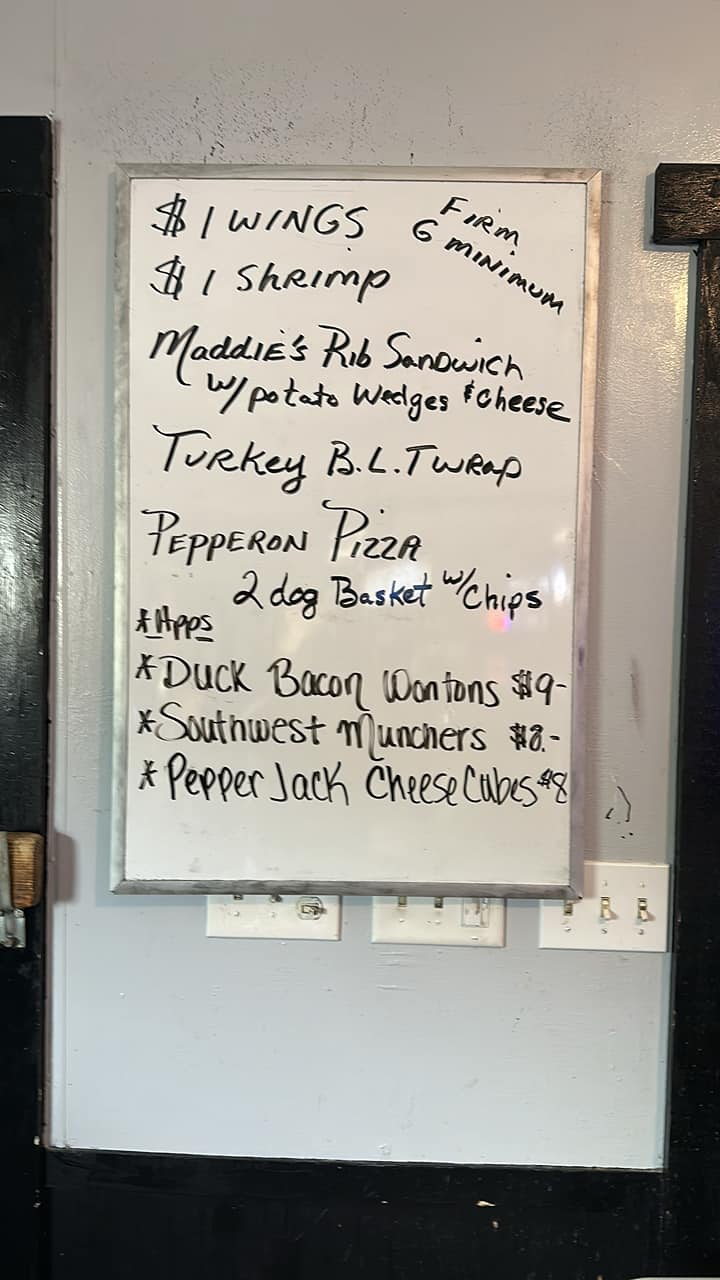 $1 WINGS
FIRM
6 MINIMUM
$1 SHRIMP
MADDIE'S RIB SANDWICH
W/potato Wedges & cheese
TURKEY B.L.T WRAP
PEPPERON PIZZA
2 dog Basket w/Chips
*Apps
*Duck Bacon Wontons $9-
*Southwest Munchers $8.-
*Pepper Jack Cheese Cubes $8